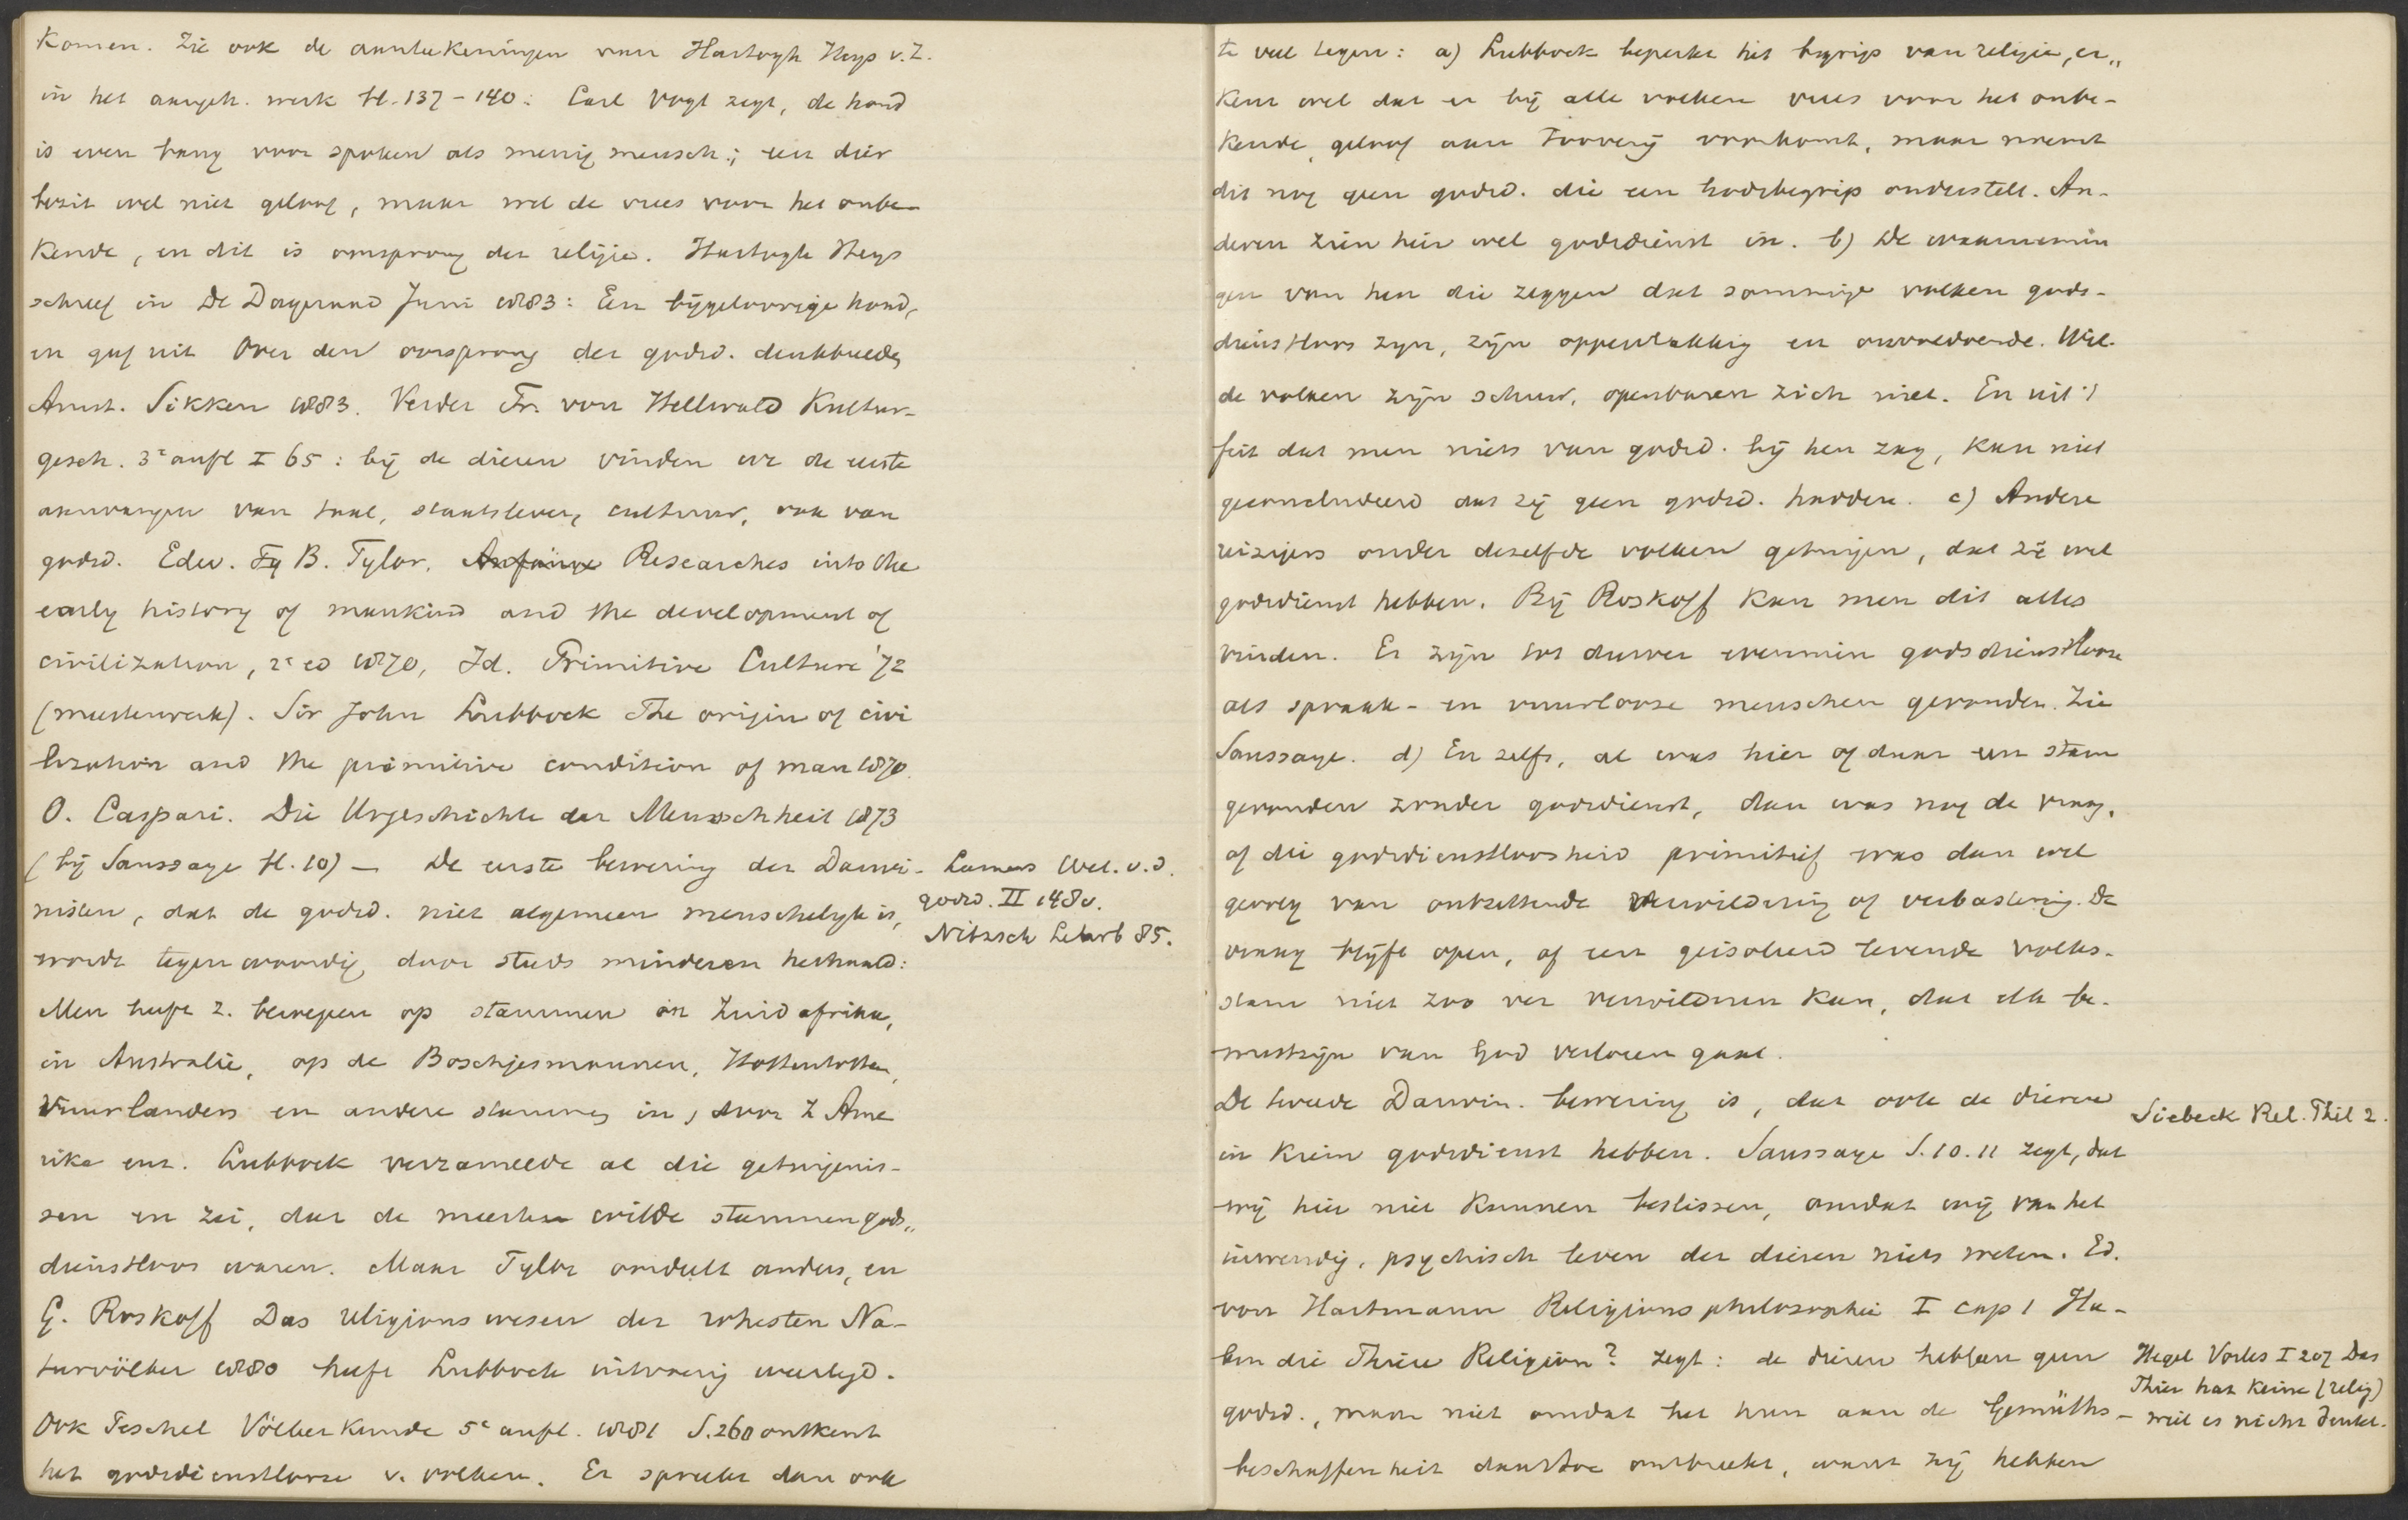 komen. Zie ook de aanteekeningen van Hartogh Heys v.Z.
in het aangeh. werk bl. 137-140: Carl Vogt zegt, de hond
is even bang voor spoken als menig mensch; een dier
bezit wel niet geloof, maar wel de vrees voor het onbe-
kende, en dit is oorsprong der religie. Hartogh Heys
schreef in De Dageraad Juni 1883: Een bijgeloovige hond,
en gaf uit Over den oorsprong der godsd. denkbeelden
Amst. Sikken 1883. Verder Fr. von Hellwald Kultur-
gesch. 3e aufl I 65: bij de dieren vinden we de eerste
aanvangen van taal, staatsleven, cultuur, ook van
godsd. Edw. B. Tylor, Researches into the
early history of mankind and the development of
civilization, 2e ed 1870, Id. Primitive Culture '72
(meesterwerk). Sir John Lubbock The origin of civi
lization and the primitive condition of man 1870.
O. Caspari. Die Urgeschichte der Menschheit 1873
(bij Saussaye bl. 10) — De eerste bewering der Darwi-
nisten, dat de godsd. niet algemeen menschelijk is,
wordt tegenwoordig door steeds minderen herhaald:
Men heeft z. beroepen op stammen in Zuid afrika,
in Australie, op de Boschjesmannen, Hottentotten,
Vuurlanders en andere stammen in Z Ame
rika enz. Lubbock verzamelde al die getuigenis-
sen en zei, dat de meeste wilde stammen gods„
dienstloos waren. Maar Tylor oordeelt anders, en
G. Roskoff Das religionswesen der rohesten Na-
turvölker 1880 heeft Lubbock uitvoerig weerlegd.
Ook Peschel Völkerkunde 5e aufl. 1881 S.260 ontkent
het godsdienstlooze v. volken. Er spreekt dan ook
Lamers Wet. v. d.
godsd. II 148v.
Nitzsch Lehrb 85.
te veel tegen: a) Lubbock beperkt het begrip van religie, er„
kent wel dat er bij alle volken vrees voor het onbe-
kende, geloof aan toovery voorkomt, maar noemt
dit nog geen godsd. die een godsbegrip onderstelt. An-
deren zien hier wel godsdienst in. b) De waarnemin
gen van hen die zeggen dat sommige volken gods-
dienstloos zyn, zijn oppervlakkig en onvoldoende. Wil-
de volken zijn schuw, openbaren zich niet. En uit 't
feit dat men niets van godsd. bij hen zag, kan niet
geconcludeerd dat zij geen godsd. hadden. c) Andere
reizigers onder dezelfde volken getuigen, dat zij wel
godsdienst hebben. Bij Roskoff kan men dit alles
vinden. Er zijn tot dusver evenmin godsdienstlooze
als spraak- en vuurlooze menschen gevonden. Zie
Saussaye. d) En zelfs, al was hier of daar een stam
gevonden zonder godsdienst, dan was nog de vraag,
of die godsdienstloosheid primitief was dan wel
gevolg van ontzettende verwildering of verbastering. De
vraag blijft open, of een geisoleerd levende volks-
stam niet zoo ver verwilderen kan, dat elk be-
wustzijn van God verloren gaat.
De tweede Darwin. bewering is, dat ook de dieren
in kiem godsdienst hebben. Saussaye S. 10. 11 zegt, dat
wij hier niet kunnen beslissen, omdat wij van het
inwendig, psychisch leven der dieren niets weten. Ed.
von Hartmann Religionsphilosophie I cap 1 Ha-
ben die Thiere Religion? zegt: de dieren hebben geen
godsd., maar niet omdat het hun aan de Gemüths-
beschaffenheit daartoe ontbreekt, want zij hebben
Siebeck Rel. Phil 2.
Hegel Vorles I 207 Das
Thier hat keine (relig)
weil es nicht denket.